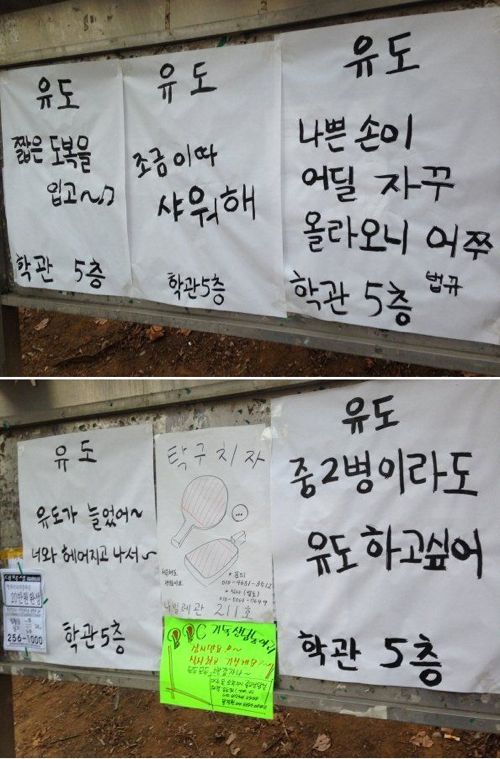 유도
짧은 도복을
입고~♪
학관 5층
유도
조금이따
샤워해
학관5층
유도
나쁜 손이
어딜 자꾸
올라오니 어쭈
학관 5층 법규
유도
유도가 늘었어~
너와 헤어지고 나서~
학관 5층
256-1000
탁구치자
211호
유도
중2병이라도
유도 하고싶어
학관 5층